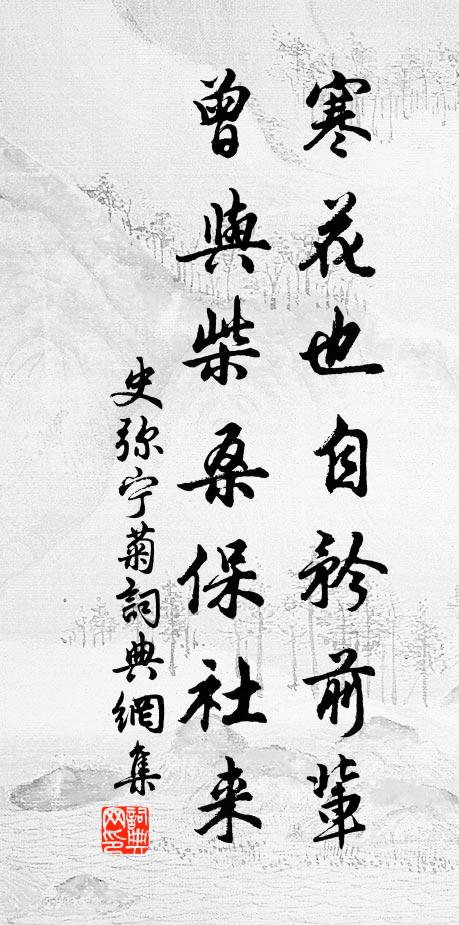 寒花也自矜前輩
曾與柴桑保社来
史弥宁菊詞典網集
詞典網印